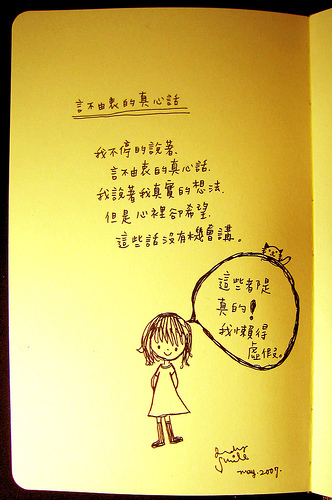 言不由衷的真心話
我不停的說著、
言不由衷的真心話、
我說著我真實的想法、
但是心裡卻希望、
這些話沒有機會講。
這些都是
真的!
我懶得
虛假。
smile
may.2007.